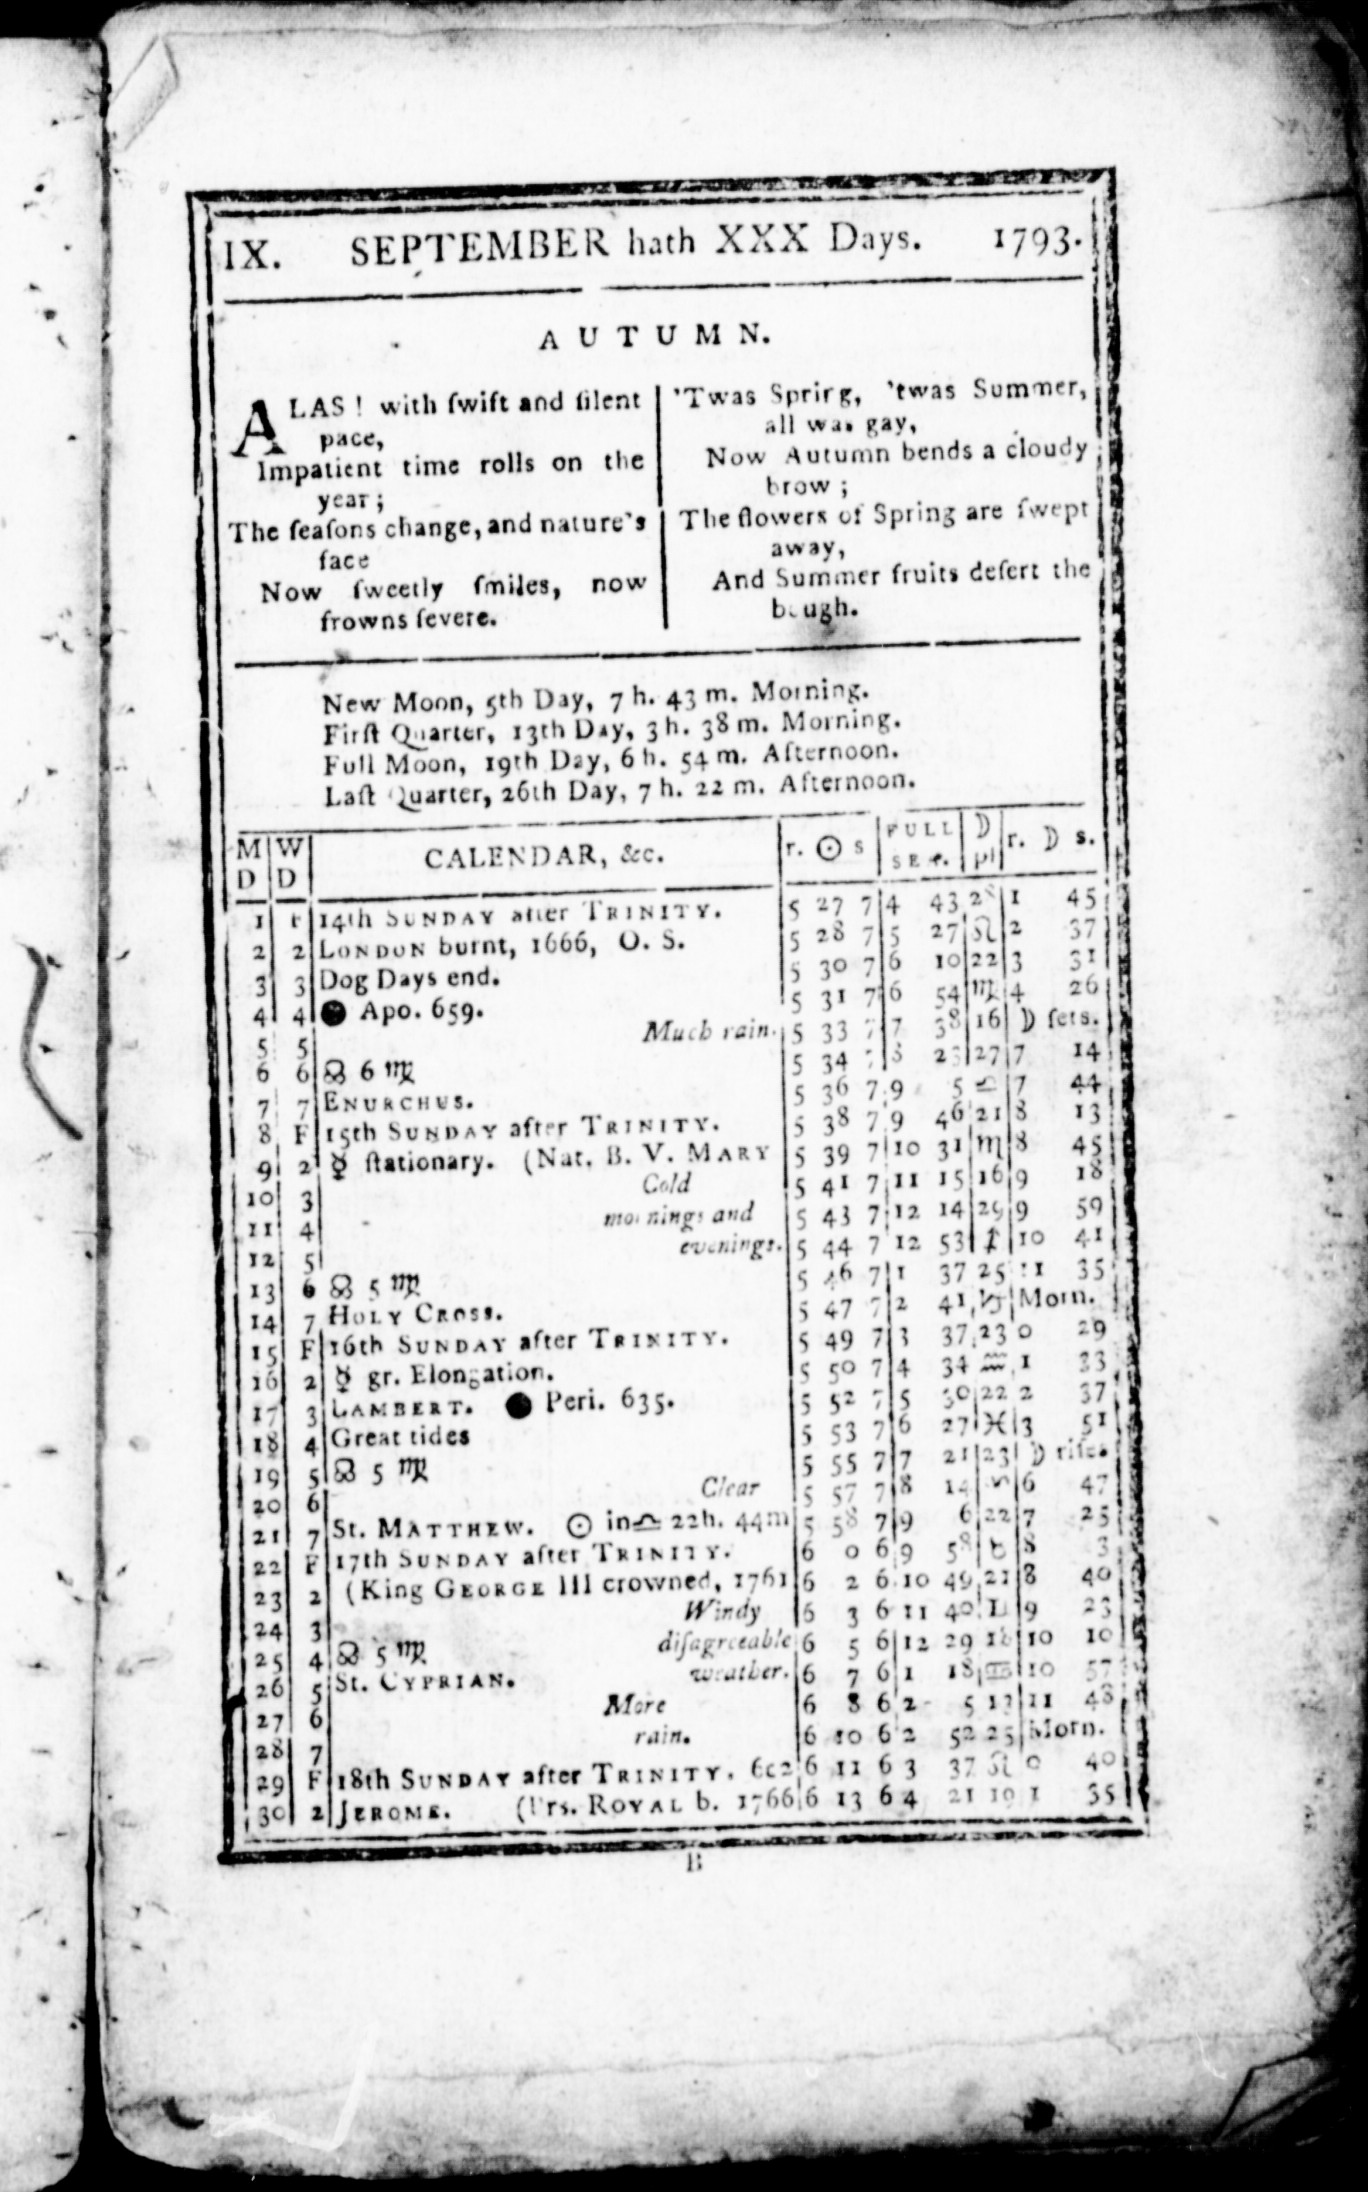 IX. SEPTEMBER hath XXX Days. 1793.
AUTUMN.
ALAS! with ſwift and ſilent
pace,
Impatient time rolls on the
year;
The ſeaſons change, and nature's
face
Now ſweetly ſmiles, now
frowns ſevere.
'Twas Spring, 'twas Summer,
all was gay,
Now Autumn bends a cloudy
brow;
The flowers of Spring are ſwept
away,
And Summer fruits deſert the
bough.
New Moon, 5th Day, 7 h. 43 m. Morning.
Firſt Quarter, 13th Day, 3 h. 38 m. Morning.
Full Moon, 19th Day, 6 h. 54 m. Afternoon.
Laſt Quarter, 26th Day, 7 h. 22 m. Afternoon.
M W CALENDAR, &c. r. ☉ s FULL ☽ r. ☽ s.
D D SEA. pl
1 F 14th SUNDAY after TRINITY. 5 27 7 4 43 28 1 45
2 2 LONDON burnt, 1666, O. S. 5 28 7 5 27 ♌ 2 37
3 3 Dog Days end. 5 30 7 6 10 22 3 31
4 4 ● Apo. 659. 5 31 7 6 54 ♍ 4 26
5 5 Much rain. 5 33 7 7 38 16 ☽ ſets.
6 6 ☊ 6 ♍ 5 34 7 8 23 27 7 14
7 7 ENURCHUS. 5 36 7 9 5 ♎ 7 44
8 F 15th SUNDAY after TRINITY. 5 38 7 9 46 21 8 13
9 2 ☿ ſtationary. (Nat. B. V. MARY 5 39 7 10 31 ♏ 8 45
10 3 Cold 5 41 7 11 15 16 9 18
11 4 mornings and 5 43 7 12 14 29 9 59
12 5 evenings. 5 44 7 12 53 ♐ 10 41
13 6 ☊ 5 ♍ 5 46 7 1 37 25 11 35
14 7 HOLY CROSS. 5 47 7 2 41 ♑ Morn.
15 F 16th SUNDAY after TRINITY. 5 49 7 3 37 23 0 29
16 2 ☿ gr. Elongation. 5 50 7 4 34 ♒ 1 33
17 3 LAMBERT. ● Peri. 635. 5 52 7 5 30 22 2 37
18 4 Great tides 5 53 7 6 27 ♓ 3 51
19 5 ☊ 5 ♍ 5 55 7 7 21 23 ☽ riſes
20 6 Clear 5 57 7 8 14 ♈ 6 47
21 7 St. MATTHEW. ☉ in ♎ 22h. 44m 5 58 7 9 6 22 7 25
22 F 17th SUNDAY after TRINITY. 6 0 6 9 58 ♉ 8 3
23 2 (King GEORGE III crowned, 1761 6 2 6 10 49 21 8 40
24 3 Windy 6 3 6 11 40 9 23
25 4 ☊ 5 ♍ diſagreeable 6 5 6 12 29 18 10 10
26 5 St. CYPRIAN. weather. 6 7 6 1 18 ♋ 10 57
27 6 More 6 8 6 2 5 13 11 48
28 7 rain. 6 10 6 2 52 25 Morn.
29 F 18th SUNDAY after TRINITY. 6 11 6 3 37 ♌ 0 40
30 2 JEROME. (Prs. ROYAL b. 1766 6 13 6 4 21 19 1 35
B